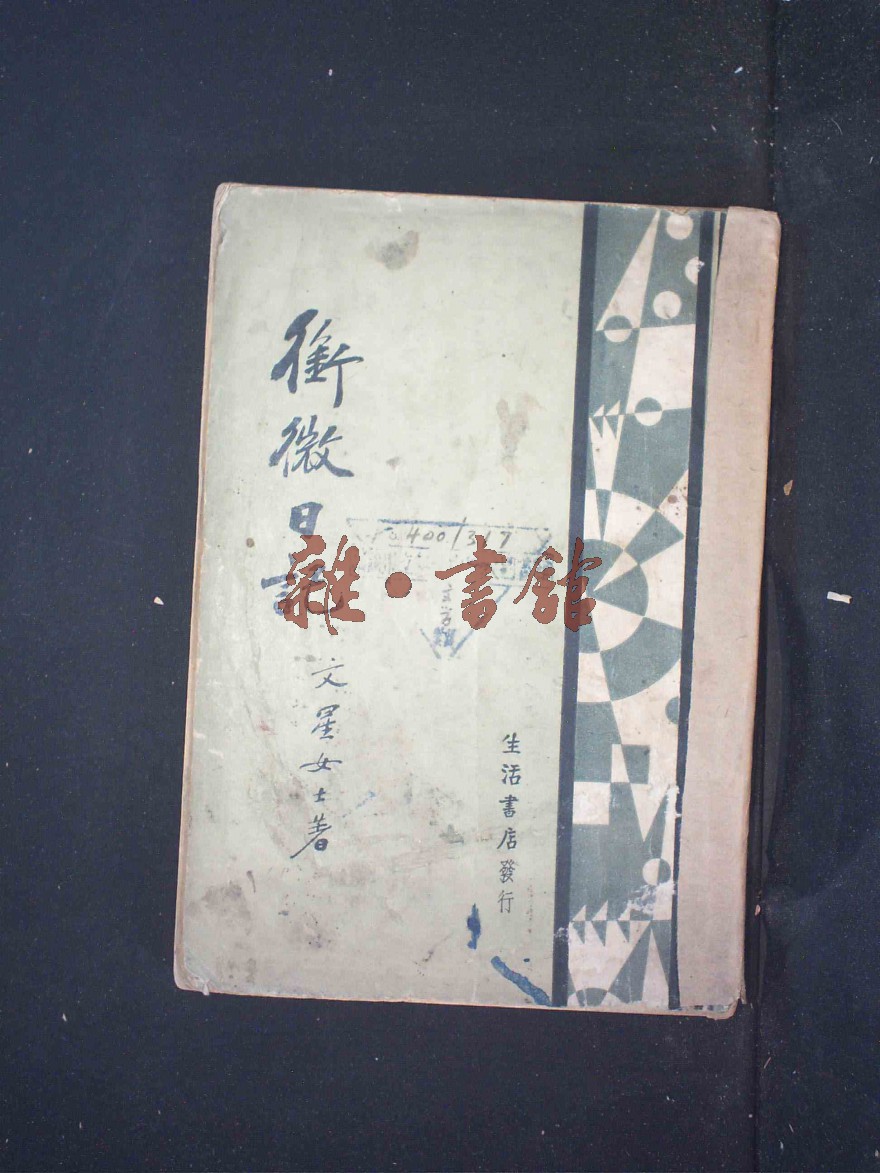 銜微日記
文星女士著
生活書店發行
400/317
雜·書館